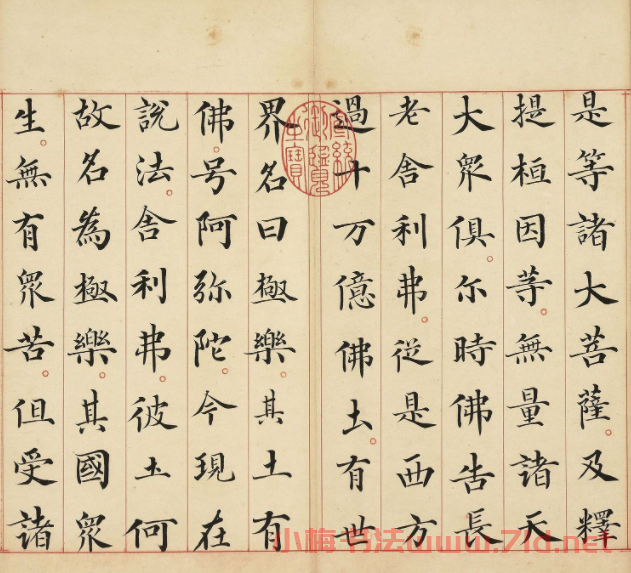 是等諸大菩薩。及釋
提桓因等。無量諸天
大衆俱。尔時佛告長
老舍利弗。從是西方
過十万億佛土。有世
界名曰極樂。其土有
佛。号阿弥陀。今現在
說法。舍利弗。彼土何
故名為極樂。其國衆
生。無有衆苦。但受諸
宣統
御覽
之寶
小梅书法www.7ld.net